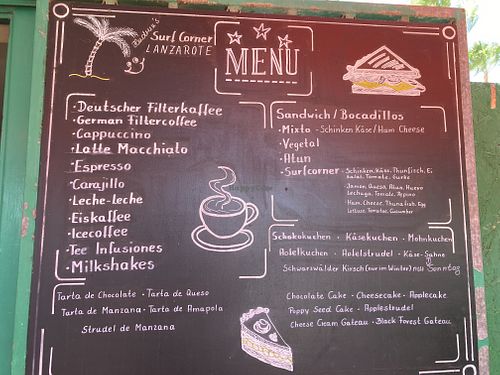 Rudy's
Surf Corner
LANZAROTE
MENU
• Deutscher Filterkaffee
• German Filtercoffee
• Cappuccino
• Latte Macchiato
• Espresso
• Carajillo
• Leche-leche
• Eiskaffee
• Icecoffee
• Tee Infusiones
• Milkshakes
Sandwich/Bocadillos
• Mixta - Schinken Käse/Ham Cheese
• Vegetal
• Atun
• Surfcorner - Schinken, Käse, Thunfisch, Ei
Salat, Tomate, Gurke
Jamon, Queso, Atun, Huevo
Lechuga, Tomate, Pepino
Ham, Cheese, Thunafish, Egg
Lettuce, Tomatoe, Cucumber
Schokokuchen • Käsekuchen • Mohnkuchen
Apfelkuchen • Apfelstrudel • Käse-Sahne
Schwarzwälder Kirsch (nur im Winter) nur Sonntag
Tarta de Chocolate • Tarta de Queso
Tarta de Manzana • Tarta de Amapola
Strudel de Manzana
Chocolate Cake • Cheesecake • Applecake
Poppy Seed Cake • Applestrudel
Cheese Cream Gateau • Black Forest Gateau